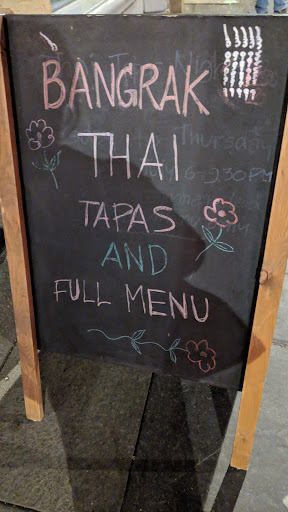 BANGRAK
THAI
TAPAS
AND
FULL MENU
Thursday
6-9.30PM